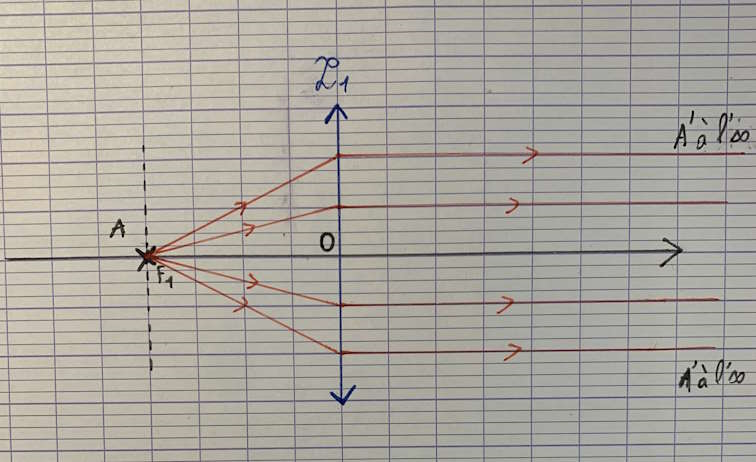 L1
A' à l'∞
A
O
F1
A' à l'∞